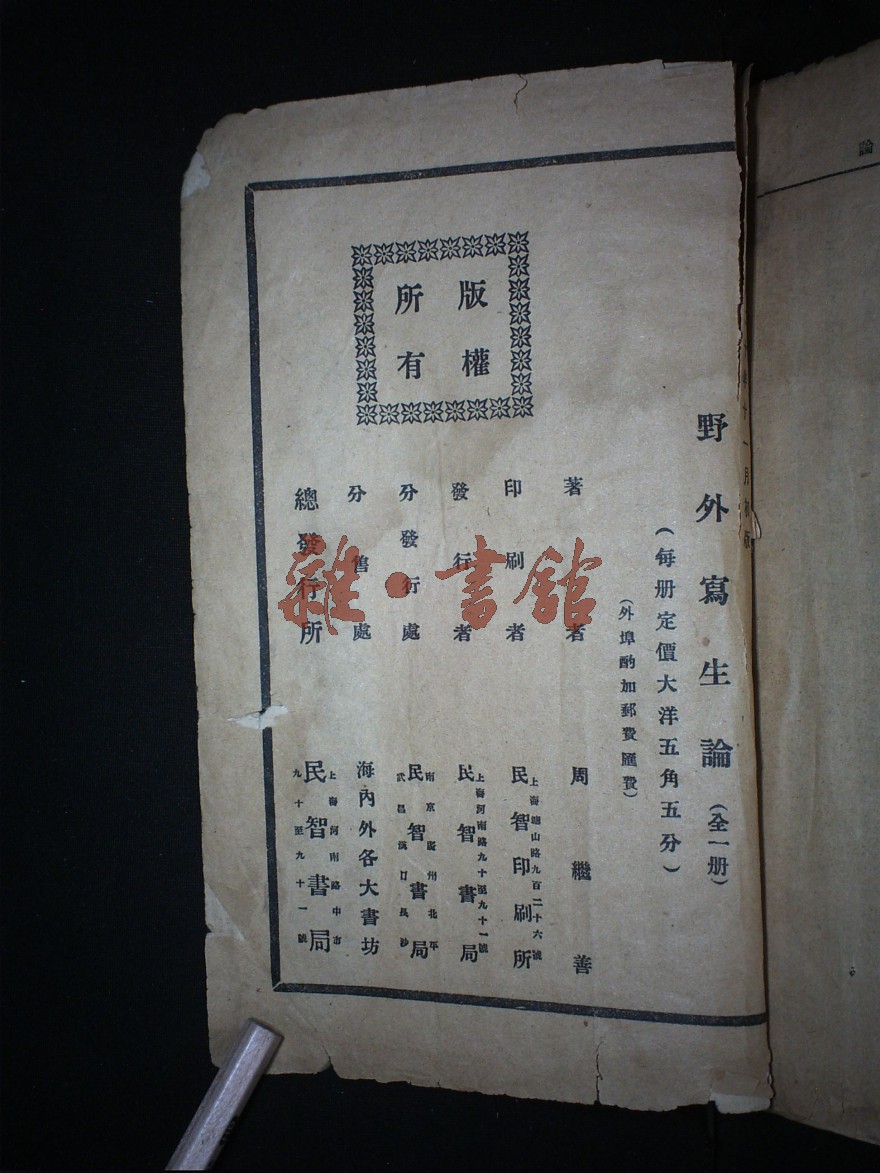 論
年十一月初版
野外寫生論（全一册）
（每册定價大洋五角五分）
（外埠酌加郵費匯費）
著者 周繼善
印刷者 民智印刷所
上海塘山路九百二十六號
發行者 民智書局
上海河南路九十至九十一號
分發行處 民智書局
南京廣州北平
武昌漢口長沙
分售處 海內外各大書坊
總發行所 民智書局
上海河南路中市
九十至九十一號
版權
所有
雜·書館